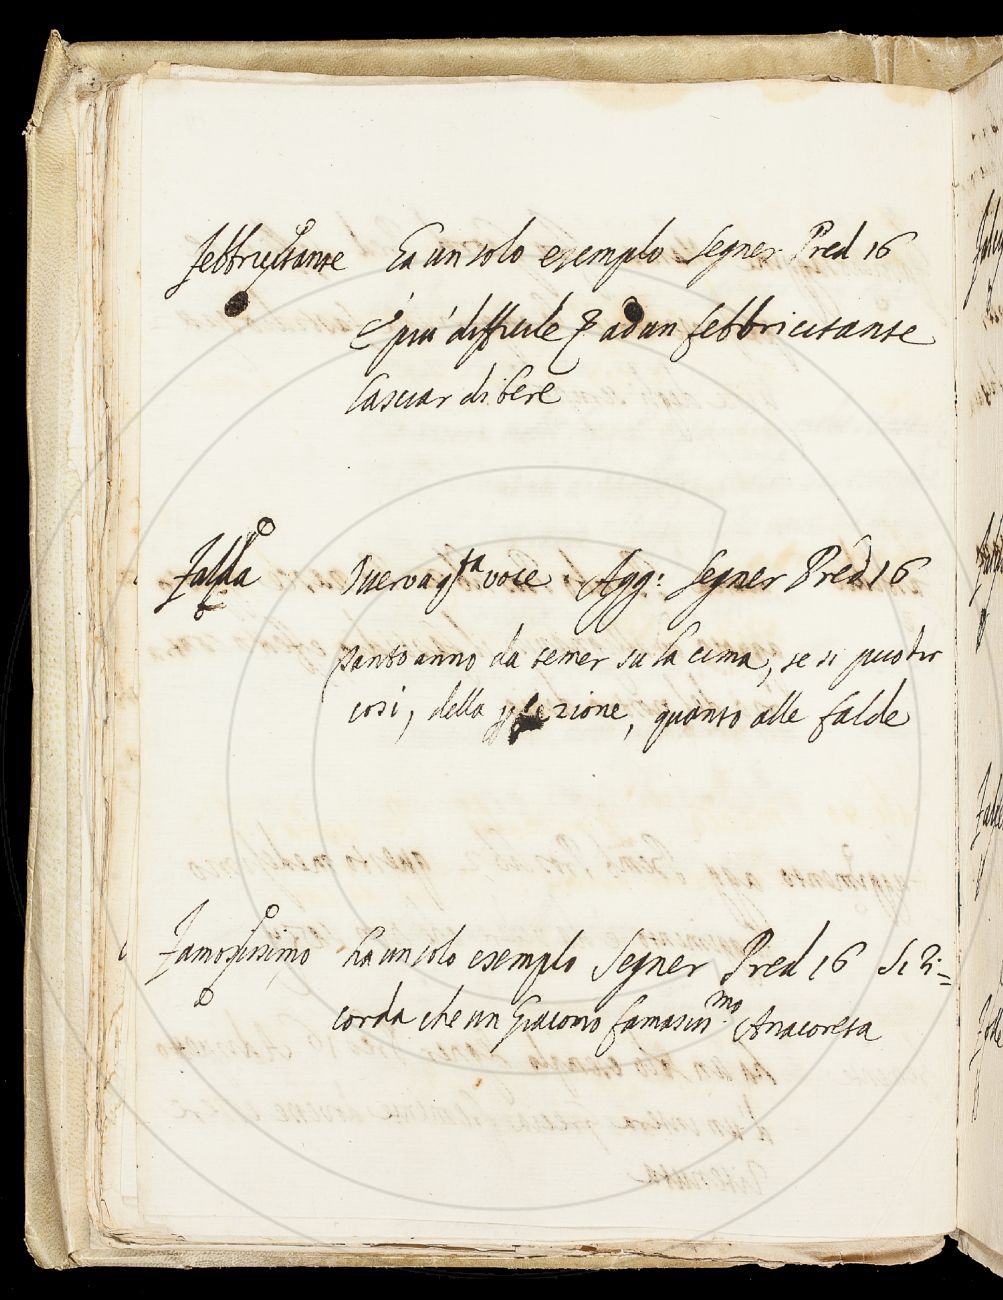 febbricitante Ha un solo esempio Segner Pred 16
È più difficile ad un febbricitante
lasciar di bere
Falda Osserva qsta voce Agg: Segner Pred 16
tanto anno da temer su la cima, se si può dir
così, della, quanto alle falde
Famosissimo ha un solo esempio Segner Pred 16 Si ri=
corda che un Giacomo famosissmo Anacoreta